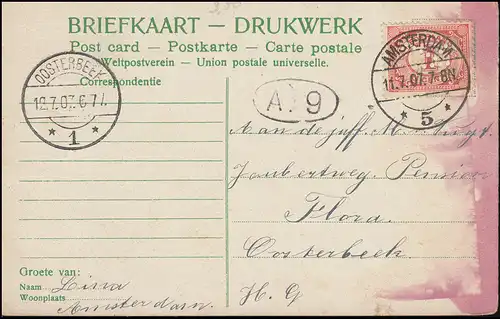 BRIEFKAART — DRUKWERK
Post card — Postkarte — Carte postale
Weltpostverein — Union postale universelle.
Correspondentie
OOSTERBEEK
12.7.07. 6-7V.
* 1 *
AMSTERDAM
11.7.07. 7-8N.
* 5 *
A. 9
Aan de juff.
Joubertweg. Pension
Flora.
Oosterbeek.
H. G
Groete van:
Naam Lina
Woonplaats Amsterdam.